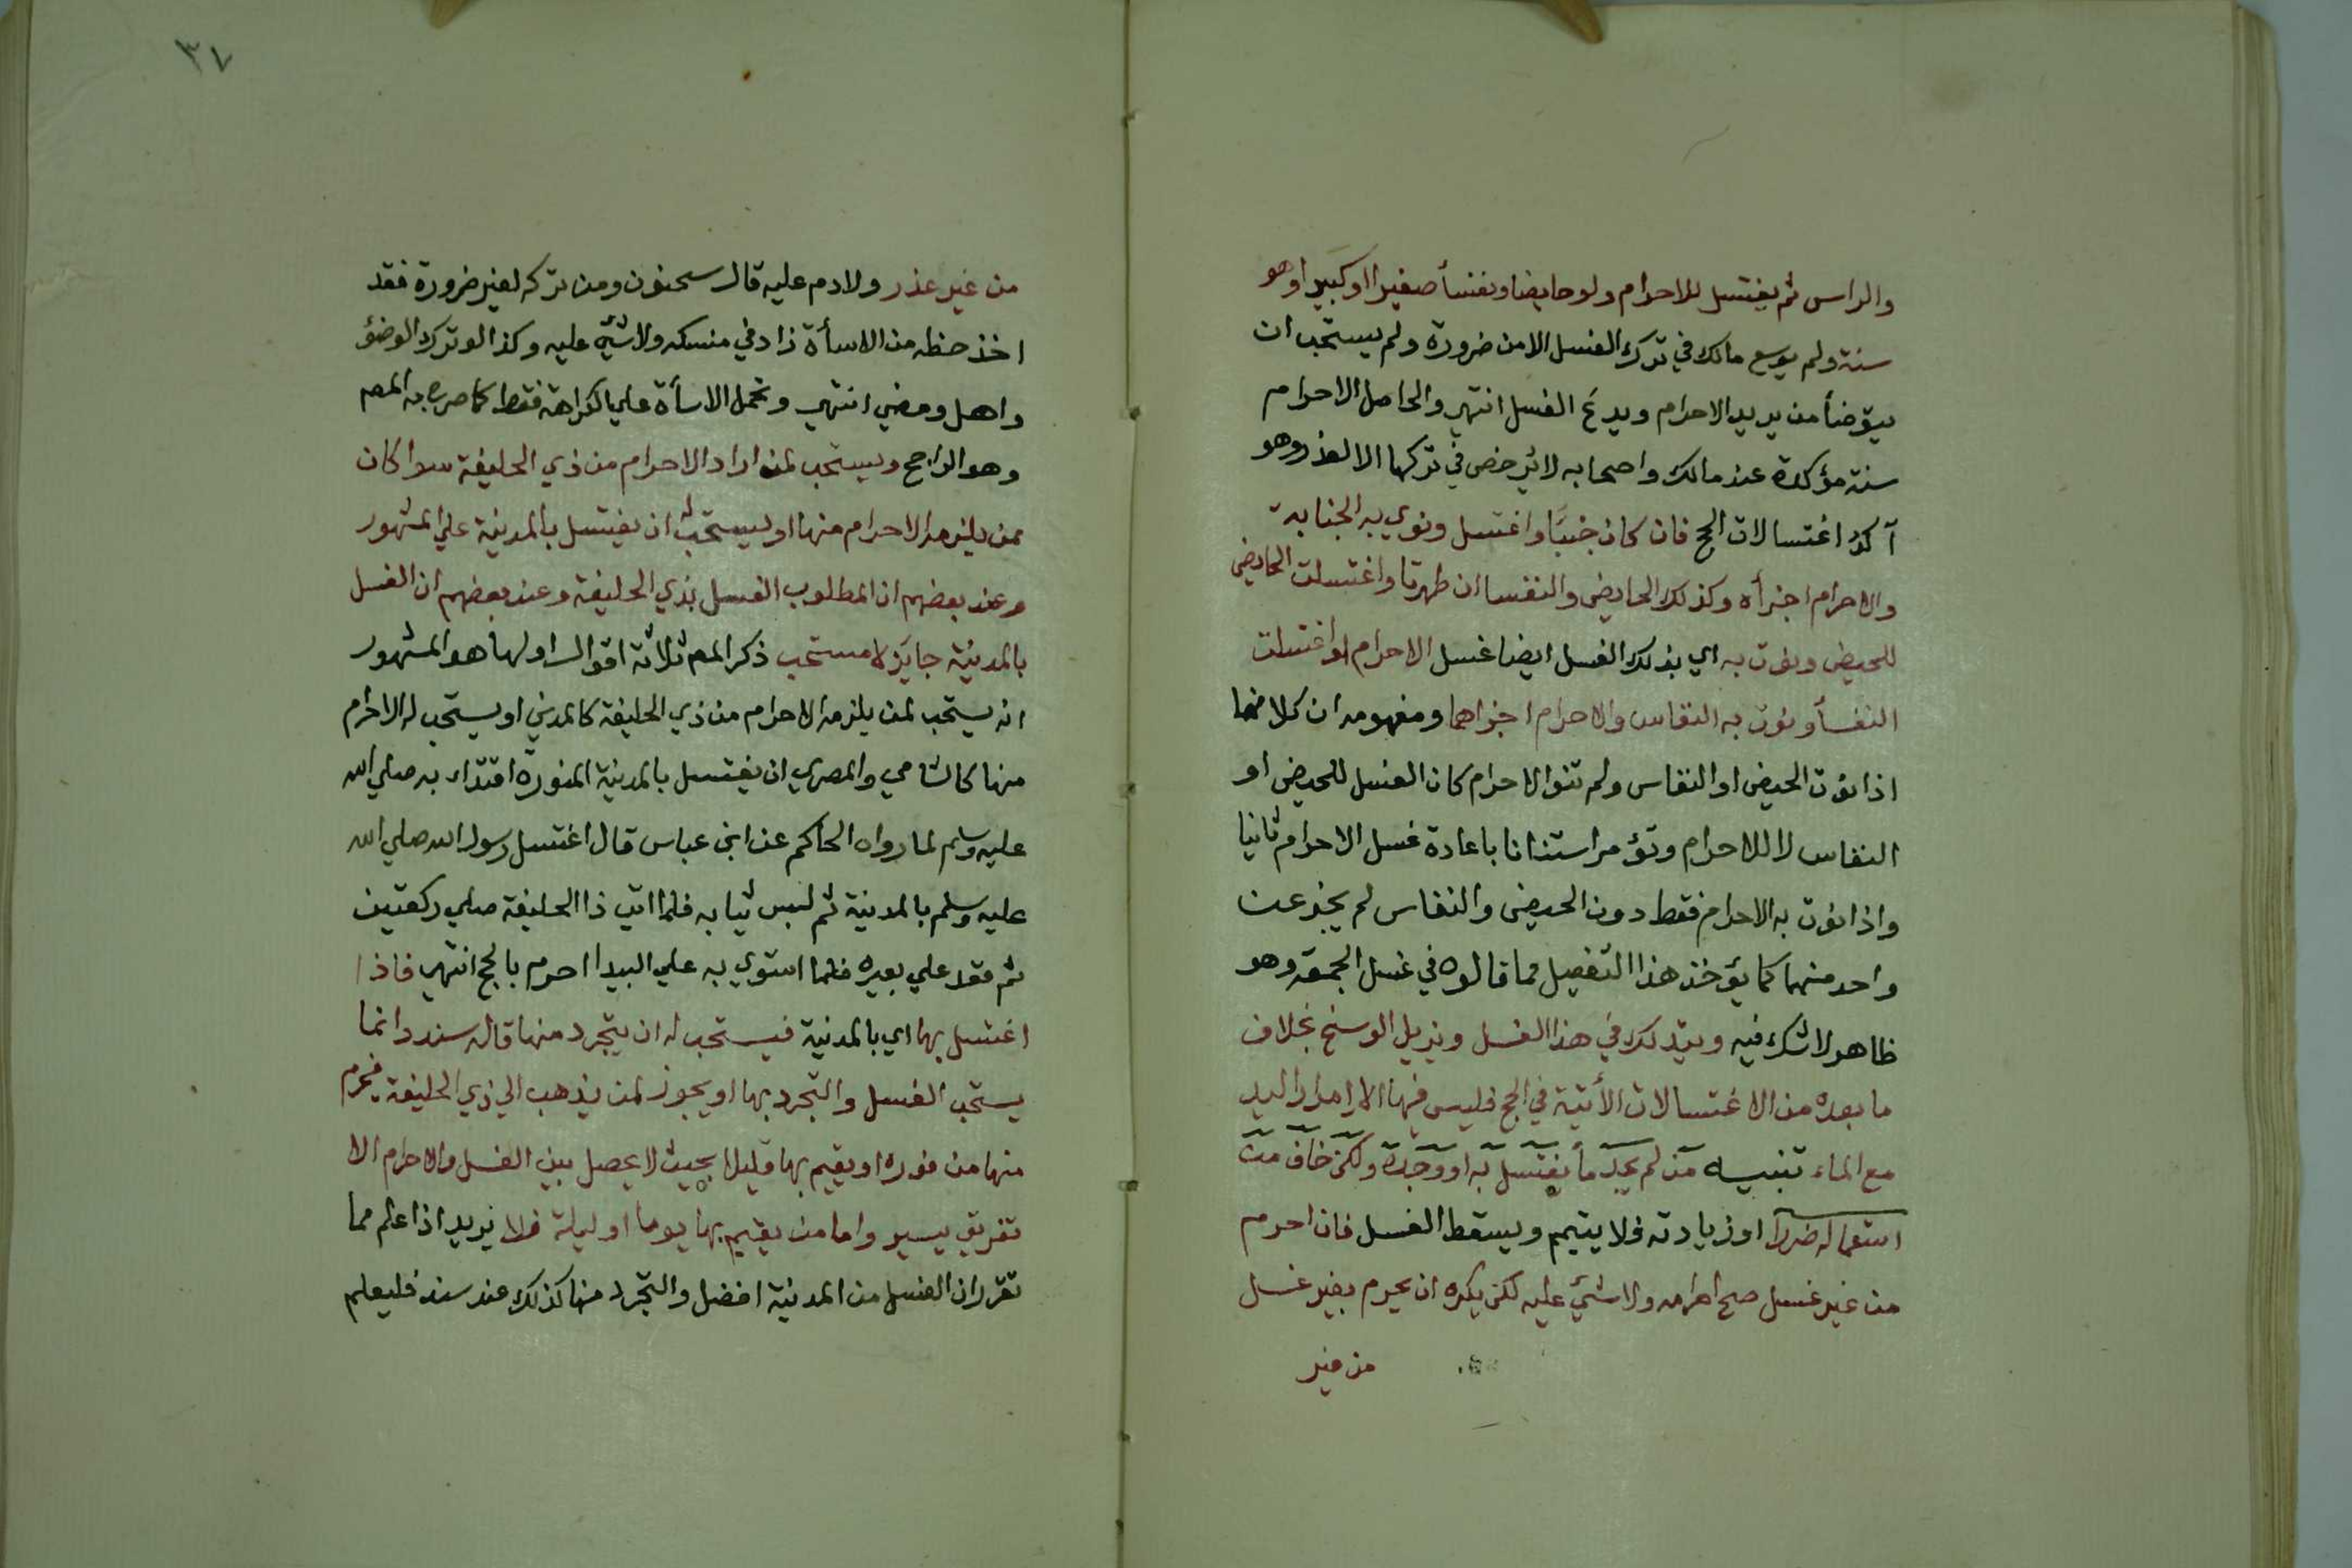 والراس ثم يغتسل للاحرام ولو حايضا ونفسأ صغيرا اوكبيرا وهو
سنة ولم يوسع مالك في ترك الغسل الا من ضرورة ولم يستحب ان
يتوضأ من يريد الاحرام ويدع الغسل انتهى والحاصل الاحرام
سنة مؤكدة عند مالك واصحابه لا يرخص في تركها الا لعذر وهو
آكد اغتسالات الحج فان كان جنبًا واغتسل ونوي به الجنابة
والاحرام اجزأه وكذلك الحايض والنفسا ان طهرتا واغتسلت الحايض
للحيض ونوت به اي بذلك الغسل ايضا غسل الاحرام او اغتسلت
النفسأ ونوت به النفاس والاحرام اجزاهما ومفهومه ان كلا منهما
اذا نوت الحيض او النفاس ولم تنو الاحرام كان الغسل للحيض او
النفاس لا للاحرام وتؤمر استنانا باعادة غسل الاحرام ثانيا
واذا نوت به الاحرام فقط دون الحيض والنفاس لم يجز عن
واحد منهما كما يؤخذ هذا التفصيل مما قالوه في غسل الجمعة وهو
ظاهر لا شك فيه ويتدلك في هذا الغسل ويزيل الوسخ بخلاف
ما بعده من الاغتسالات الأتية في الحج فليس فيها الا امرار اليد
مع الماء تنبيه من لم يجد مأ يغتسل به او وجده ولكن خاف من
استعماله ضررا او زيادته فلا يتيمم ويسقط الغسل فان احرم
من غير غسل صح احرامه ولا شئ عليه لكن يكره ان يحرم بغير غسل
من غير
٣٧
من غير عذر ولا دم عليه قال سحنون ومن تركه لغير ضرورة فقد
اخذ حظه من الاسأة زاد في منسكه ولا شئ عليه وكذا لو ترك الوضؤ
واهل ومضي انتهي وتحمل الاسأة علي الكراهة فقط كما صرح به المص
وهو الراجح ويستحب لمن اراد الاحرام من ذي الحليفة سوا كان
ممن يلزمه الاحرام منها او يستحب له ان يغتسل بالمدينة علي المشهور
وعند بعضهم ان المطلوب الغسل بذي الحليفة وعند بعضهم ان الغسل
بالمدينة جايز لا مستحب ذكر المص ثلاثة اقوال اولها هو المشهور
انه يستحب لمن يلزمه الاحرام من ذي الحليفة كالمدني او يستحب له الاحرام
منها كالشامي والمصري ان يغتسل بالمدينة المنورة اقتداء به صلي الله
عليه وسلم لما رواه الحاكم عن ابن عباس قال اغتسل رسول الله صلي الله
عليه وسلم بالمدينة ثم لبس ثيابه فلما اتي ذا الحليفة صلي ركعتين
ثم قعد علي بعيره فلما استوي به علي البيدا احرم بالحج انتهى فاذا
اغتسل بها اي بالمدنية فيستحب له ان يتجرد منها قاله سند وانما
يستحب الغسل والتجرد بها او يجوز لمن يذهب الي ذي الحليفة فيحرم
منها من فوره او يقيم بها قليلا بحيث لا يحصل بين الغسل والاحرام الا
تفريق يسير واما من يقيم بها يوما او ليلة فلا يريد اذا علم مما
تقرر ان الغسل من المدنية افضل والتجرد منها كذلك عند سند فليعلم